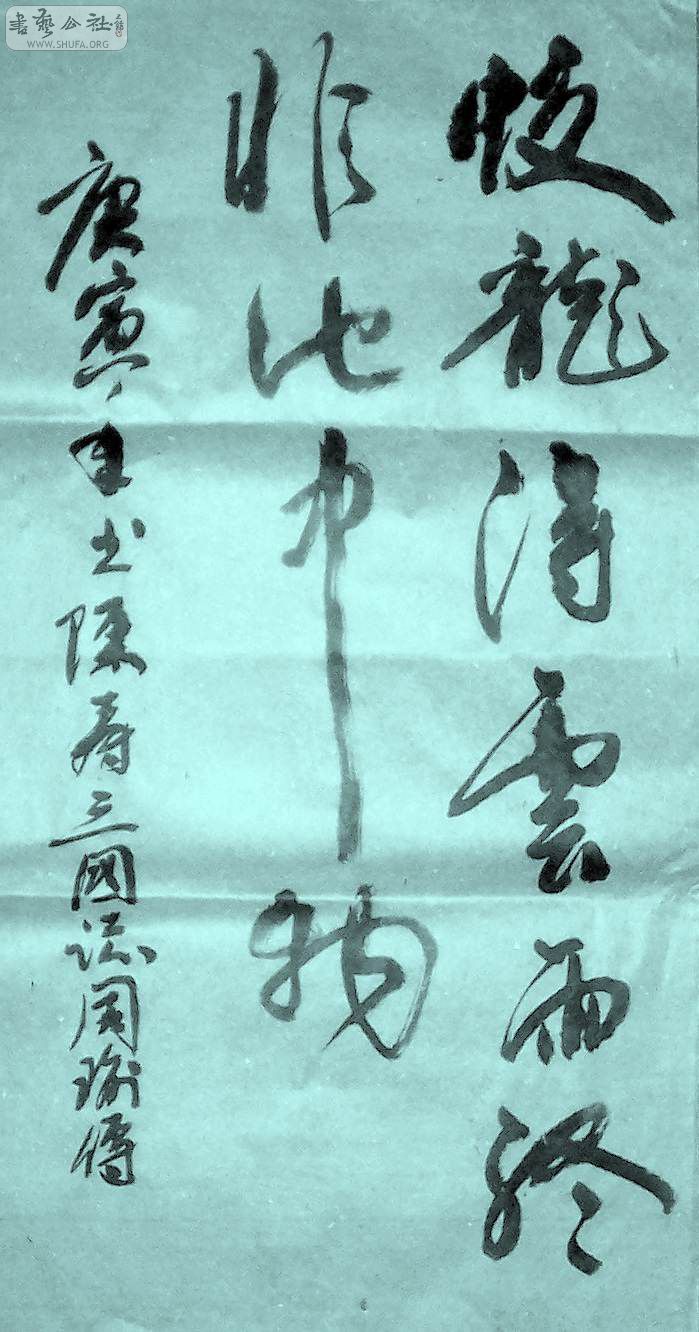 書藝公社
WWW.SHUFA.ORG
蛟龍得雲雨終
非池中物
庚寅书陳壽三國誌周瑜傳